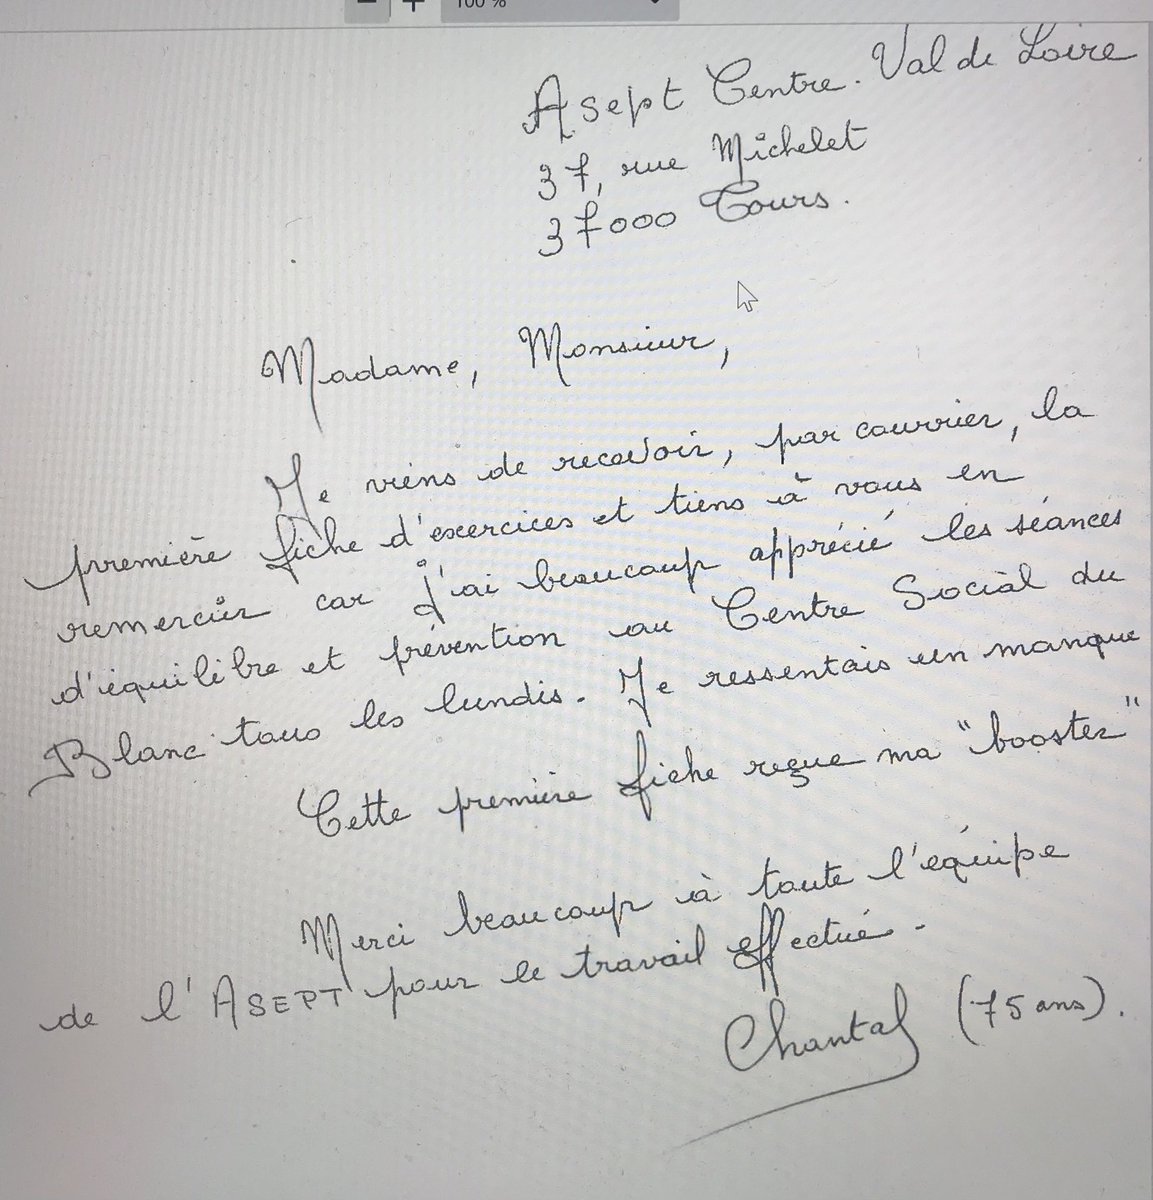 100 %
Asept Centre. Val de Loire
37, rue Michelet
37000 Tours.
Madame, Monsieur,
Je viens de recevoir, par courrier, la
première fiche d'exercices et tiens à vous en
remercier car j'ai beaucoup apprécié les séances
d'équilibre et prévention au Centre Social du
Blanc tous les lundis. Je ressentais un manque
Cette première fiche reçue ma "booster"
Merci beaucoup à toute l'équipe
de l'ASEPT pour le travail effectué.
Chantal (75 ans).